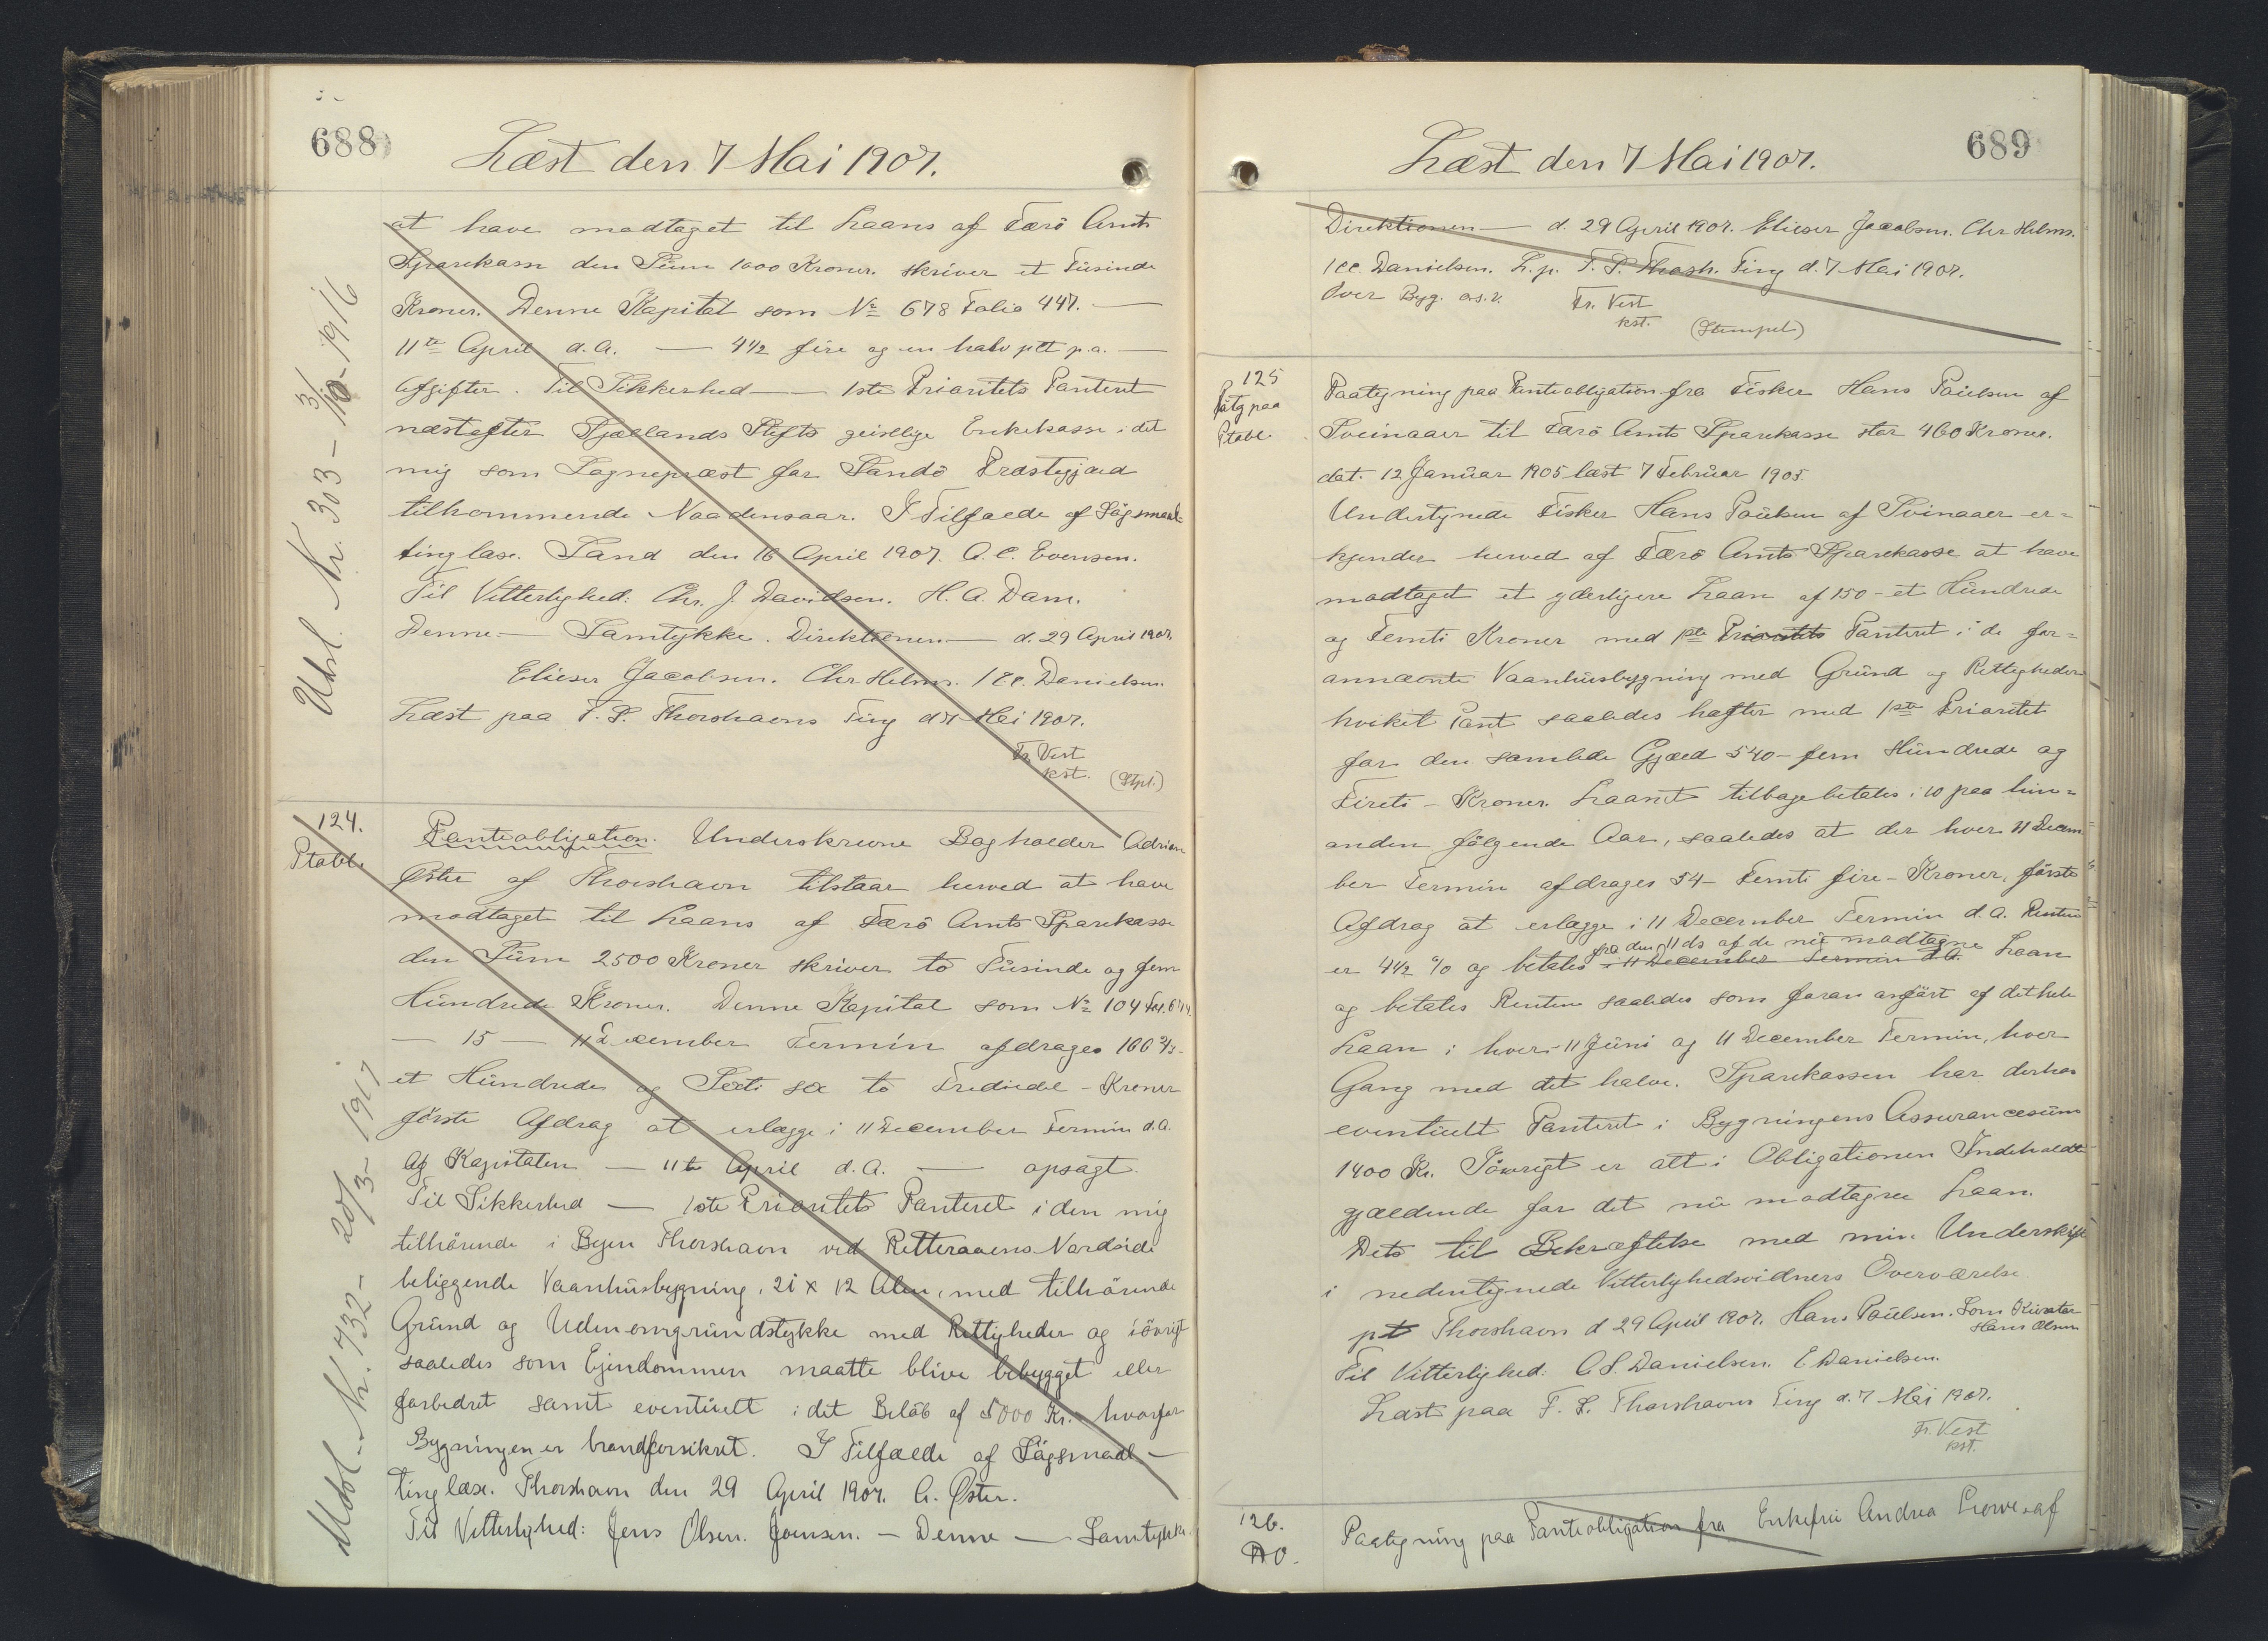 688
Læst den 7 Mai 1907.
at have modtaget til Laans af Færö Amts
Sparekasse den Sum 1000 Kroner skriver et Tusinde
Kroner. Denne Kapital som No 678 Folio 447. —
11te April d.A. — 4½ fire og en halv pCt p.a. —
Afgifter. Til Sikkerhed — 1ste Prioritets Panteret
næstefter Sjællands Stifts geistlige Enkekasse i det
mig som Sognepræst for Sandö Præstegjæld
tilkommende Naadensaar. I Tilfælde af Sögsmaal-
tinglæse. Sand den 16 April 1907. A.C. Evensen.
Til Vitterlighed: Chr. J. Davidsen. H.A. Dam.
Denne — Samtykke. Direktionen — d. 29 April 1907.
Elieser Jacobsen. Chr Helms. / CC. Danielsen.
Læst paa F.S. Thorshavns Ting d 7 Mai 1907.
Fr. Vest
kst. (Stpl.)
Udsl. Nr. 303 - 3/10 - 1916
124.
Ptobl.
Panteobligation. Underskrevne Bogholder Adrian
Øster af Thorshavn tilstaar herved at have
modtaget til Laans af Færö Amts Sparekasse
den Sum 2500 Kroner skriver to Tusinde og fem
Hundrede Kroner. Denne Kapital som No 104 Fol. 674.
— 15 — 11 December Termin afdrages 166⅔-
et Hundrede og Sexti sex to Trediedel - Kroner
förste Afdrag at erlægge i 11 December Termin d.A.
Af Kapitalen — 11te April d.A. — opsagt.
Til Sikkerhed — 1ste Prioritets Panteret i den mig
tilhörende i Byen Thorshavn ved Retteraaens Nordside
beliggende Vaanhusbygning, 21 x 12 Alen, med tilhörende
Grund og Udenomgrundstykke med Rettigheder og iövrigt
saaledes som Ejendommen maatte blive bebygget eller
forbedret samt eventuelt i det Belöb af 5000 Kr. hvorfor
Bygningen er brandforsikret. I Tilfælde af Sögsmaal —
tinglæse. Thorshavn den 29 April 1907. A. Øster.
Til Vitterlighed: Jens Olsen. Joensen. — Denne — Samtykke.
Udsl. Nr. 732 - 20/3 - 1917
689
Læst den 7 Mai 1907.
Direktionen — d. 29 April 1907. Elieser Jacobsen. Chr Helms.
/ CC. Danielsen. L.p. F.S. Thosh. Ting d. 7 Mai 1907.
Over Byg. Fr. Vest
kst. (Stempel)
125
Påtg paa
Ptobl.
Paategning paa Panteobligation fra Fisker Hans Poulsen af
Sveinaaer til Færö Amts Sparekasse stor 460 Kroner.
dat. 12 Januar 1905 læst 7 Februar 1905.
Undertegnede Fisker Hans Poulsen af Svinaaer er-
kjender herved af Færö Amts Sparekasse at have
modtaget et yderligere Laan af 150 - et Hundrede
og Femti Kroner med 1ste Prioritets Panteret i de for-
annævnte Vaanhusbygning med Grund og Rettigheder
hvilket Pant saaledes hæfter med 1ste Prioritet
for den samlede Gjæld 540 - fem Hundrede og
Fireti - Kroner. Laanet tilbagebetales i 10 paa hin-
anden fölgende Aar, saaledes at der hver 11 Decem-
ber Termin afdrages 54 - Femti fire - Kroner, förste
Afdrag at erlægge i 11 December Termin d.A. Renten
fra den 11 ds af de nu modtagne
er 4½ % og betales i 11 December Termin d.A. Laan
og betales Renten saaledes som foran anfört af det hele
Laan i hver 11 Juni og 11 December Termin, hver
Gang med det halve. Sparekassen har derhos
eventuelt Panteret i Bygningens Assurancesum
1400 Kr. Iöwrigt er alt i Obligationen Indeholdte
gjældende for det nu modtagne Laan.
Dets til Bekræftelse med min Underskrift
i nedentegnede Vitterlighedsvidners Overværelse
pt Thorshavn d 29 April 1907. Hans Poulsen. Som Kurator
Hans Olsen
Til Vitterlighed: C.S. Danielsen. E Danielsen.
Læst paa F.S. Thorshavns Ting d. 7 Mai 1907.
Fr. Vest
kst.
126.
DO.
Paategning paa Panteobligation fra Enkefru Andrea af